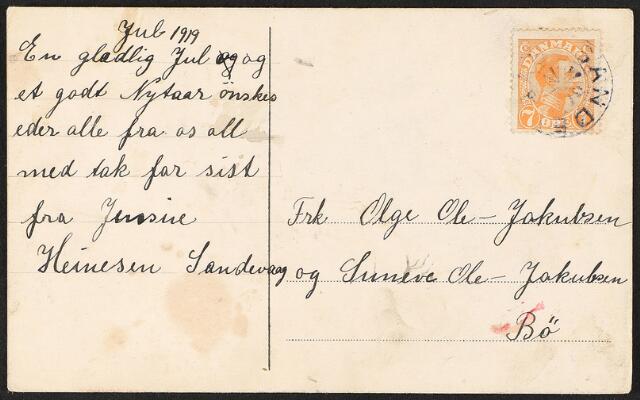 Jul 1919
En gladlig Jul og og
et godt Nytaar önskes
eder alle fra os all
med tak for sist
fra Jensine
Heinesen Sandevaag
DANMARK
7 ØRE
SANDE
Frk Olge Ole-Jakubsen
og Suneve Ole-Jakubsen
Bö